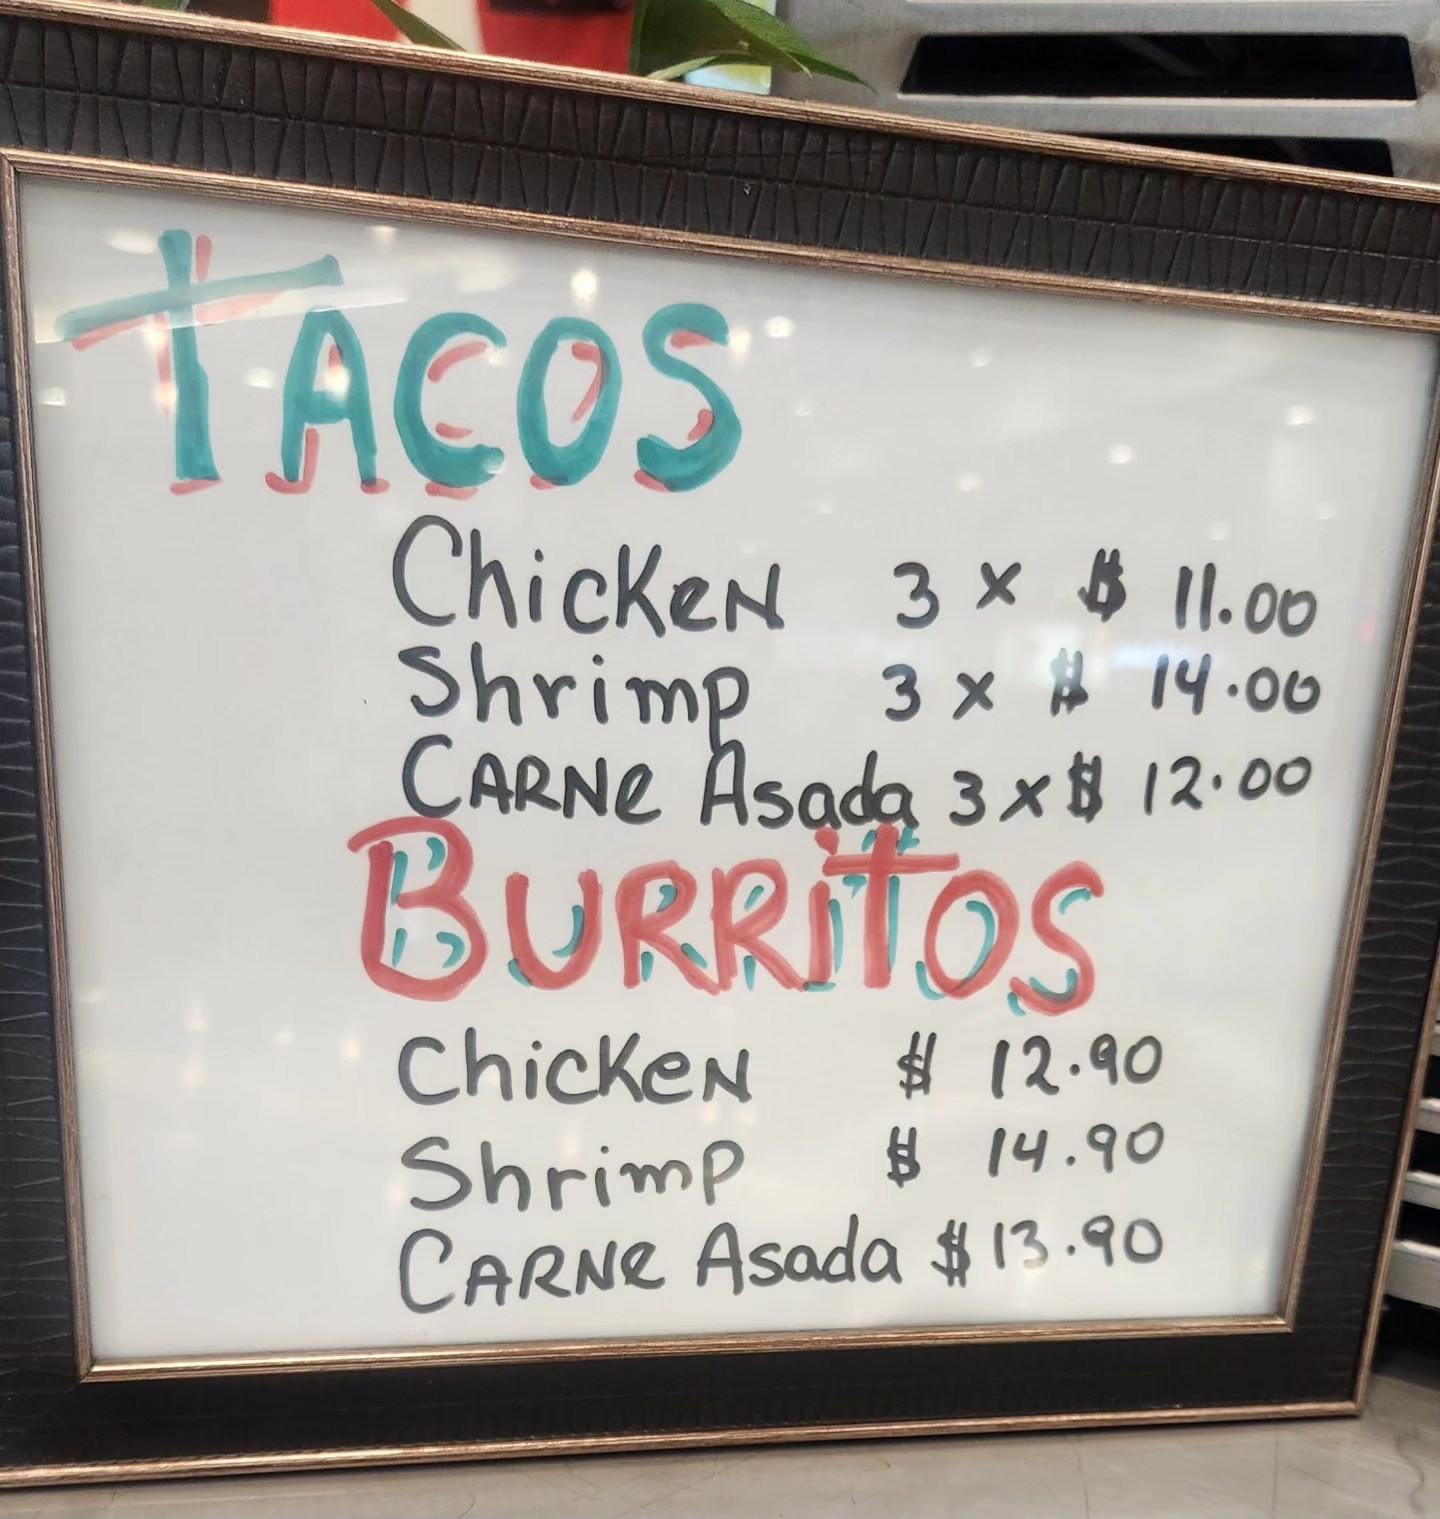 TACOS
Chicken 3 x $ 11.00
Shrimp 3 x $ 14.00
CARNe Asada 3 x $ 12.00
BURRiTOS
Chicken $ 12.90
Shrimp $ 14.90
CARNe Asada $ 13.90